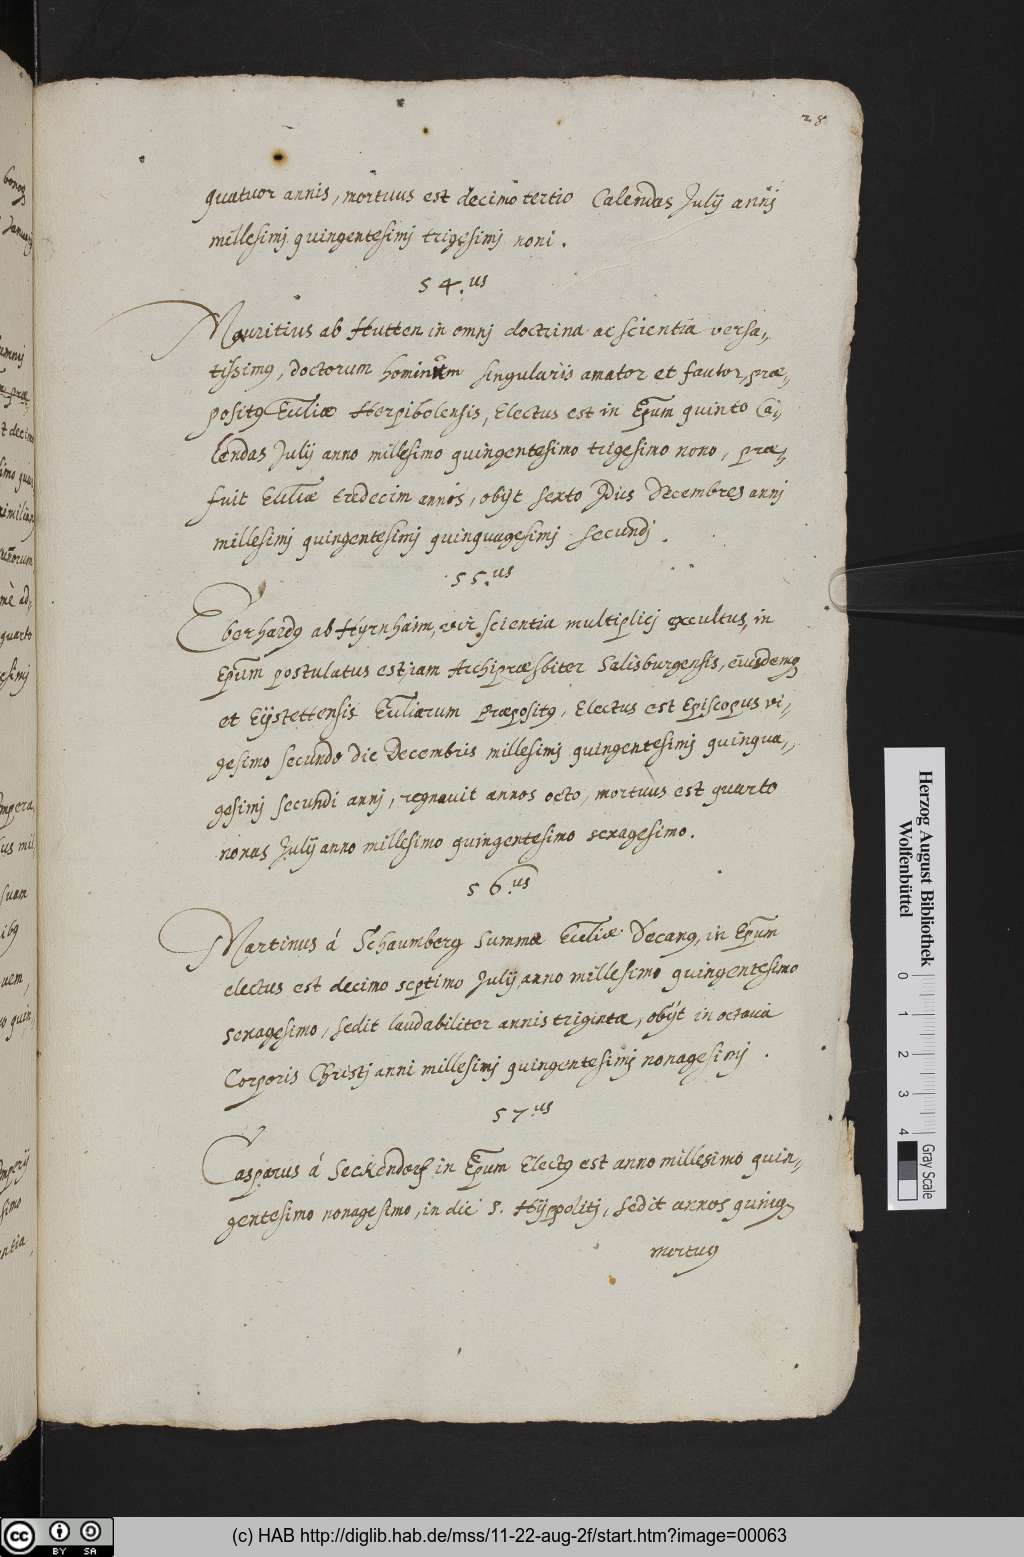 28
quatuor annis, mortuus est decimo tertio Calendas Julij annj
millesimj quingentesimj trigesimj noni.
54.us
Mauritius ab Hutten in omnj doctrina ac scientia versa„
tissimꝰ, doctorum hominum singularis amator et fautor, præ„
positꝰ Eccliæ Herpibolensis, Electus est in Epum quinto Ca„
lendas Julij anno millesimo quingentesimo trigesimo nono, præ„
fuit Eccliæ tredecim annos, obijt sexto Jdus Decembres annj
millesimj quingentesimj quinquagesimj secundj.
55.us
Eberhardꝰ ab Hyrnhaim, vir scientia multiplicj excultus, in
Epum postulatus est, iam Archipræsbiter Salisburgensis, eiusdemq
et Eijstettensis Eccliarum Præpositꝰ, Electus est Episcopus vi„
gesimo secundo die Decembris millesimj quingentesimj quinqua„
gesimj secundi annj, regnauit annos octo, mortuus est quarto
nonas Julij anno millesimo quingentesimo sexagesimo.
56.us
Martinus á Schaumberg summæ Eccliæ Decanꝰ, in Epum
electus est decimo septimo Julij anno millesimo quingentesimo
sexagesimo, sedit laudabiliter annis triginta, obijt in octaua
Corporis Christj anni millesimj quingentesimj nonagesimj.
57.us
Casparus á Seckendorf in Epum Electꝰ est anno millesimo quin„
gentesimo nonagesimo, in die S. Hÿppolitj, sedit annos quinq
mortuꝰ
Herzog August Bibliothek
Wolfenbüttel
0 1 2 3 4
Gray Scale
cc BY SA
(c) HAB http://diglib.hab.de/mss/11-22-aug-2f/start.htm?image=00063